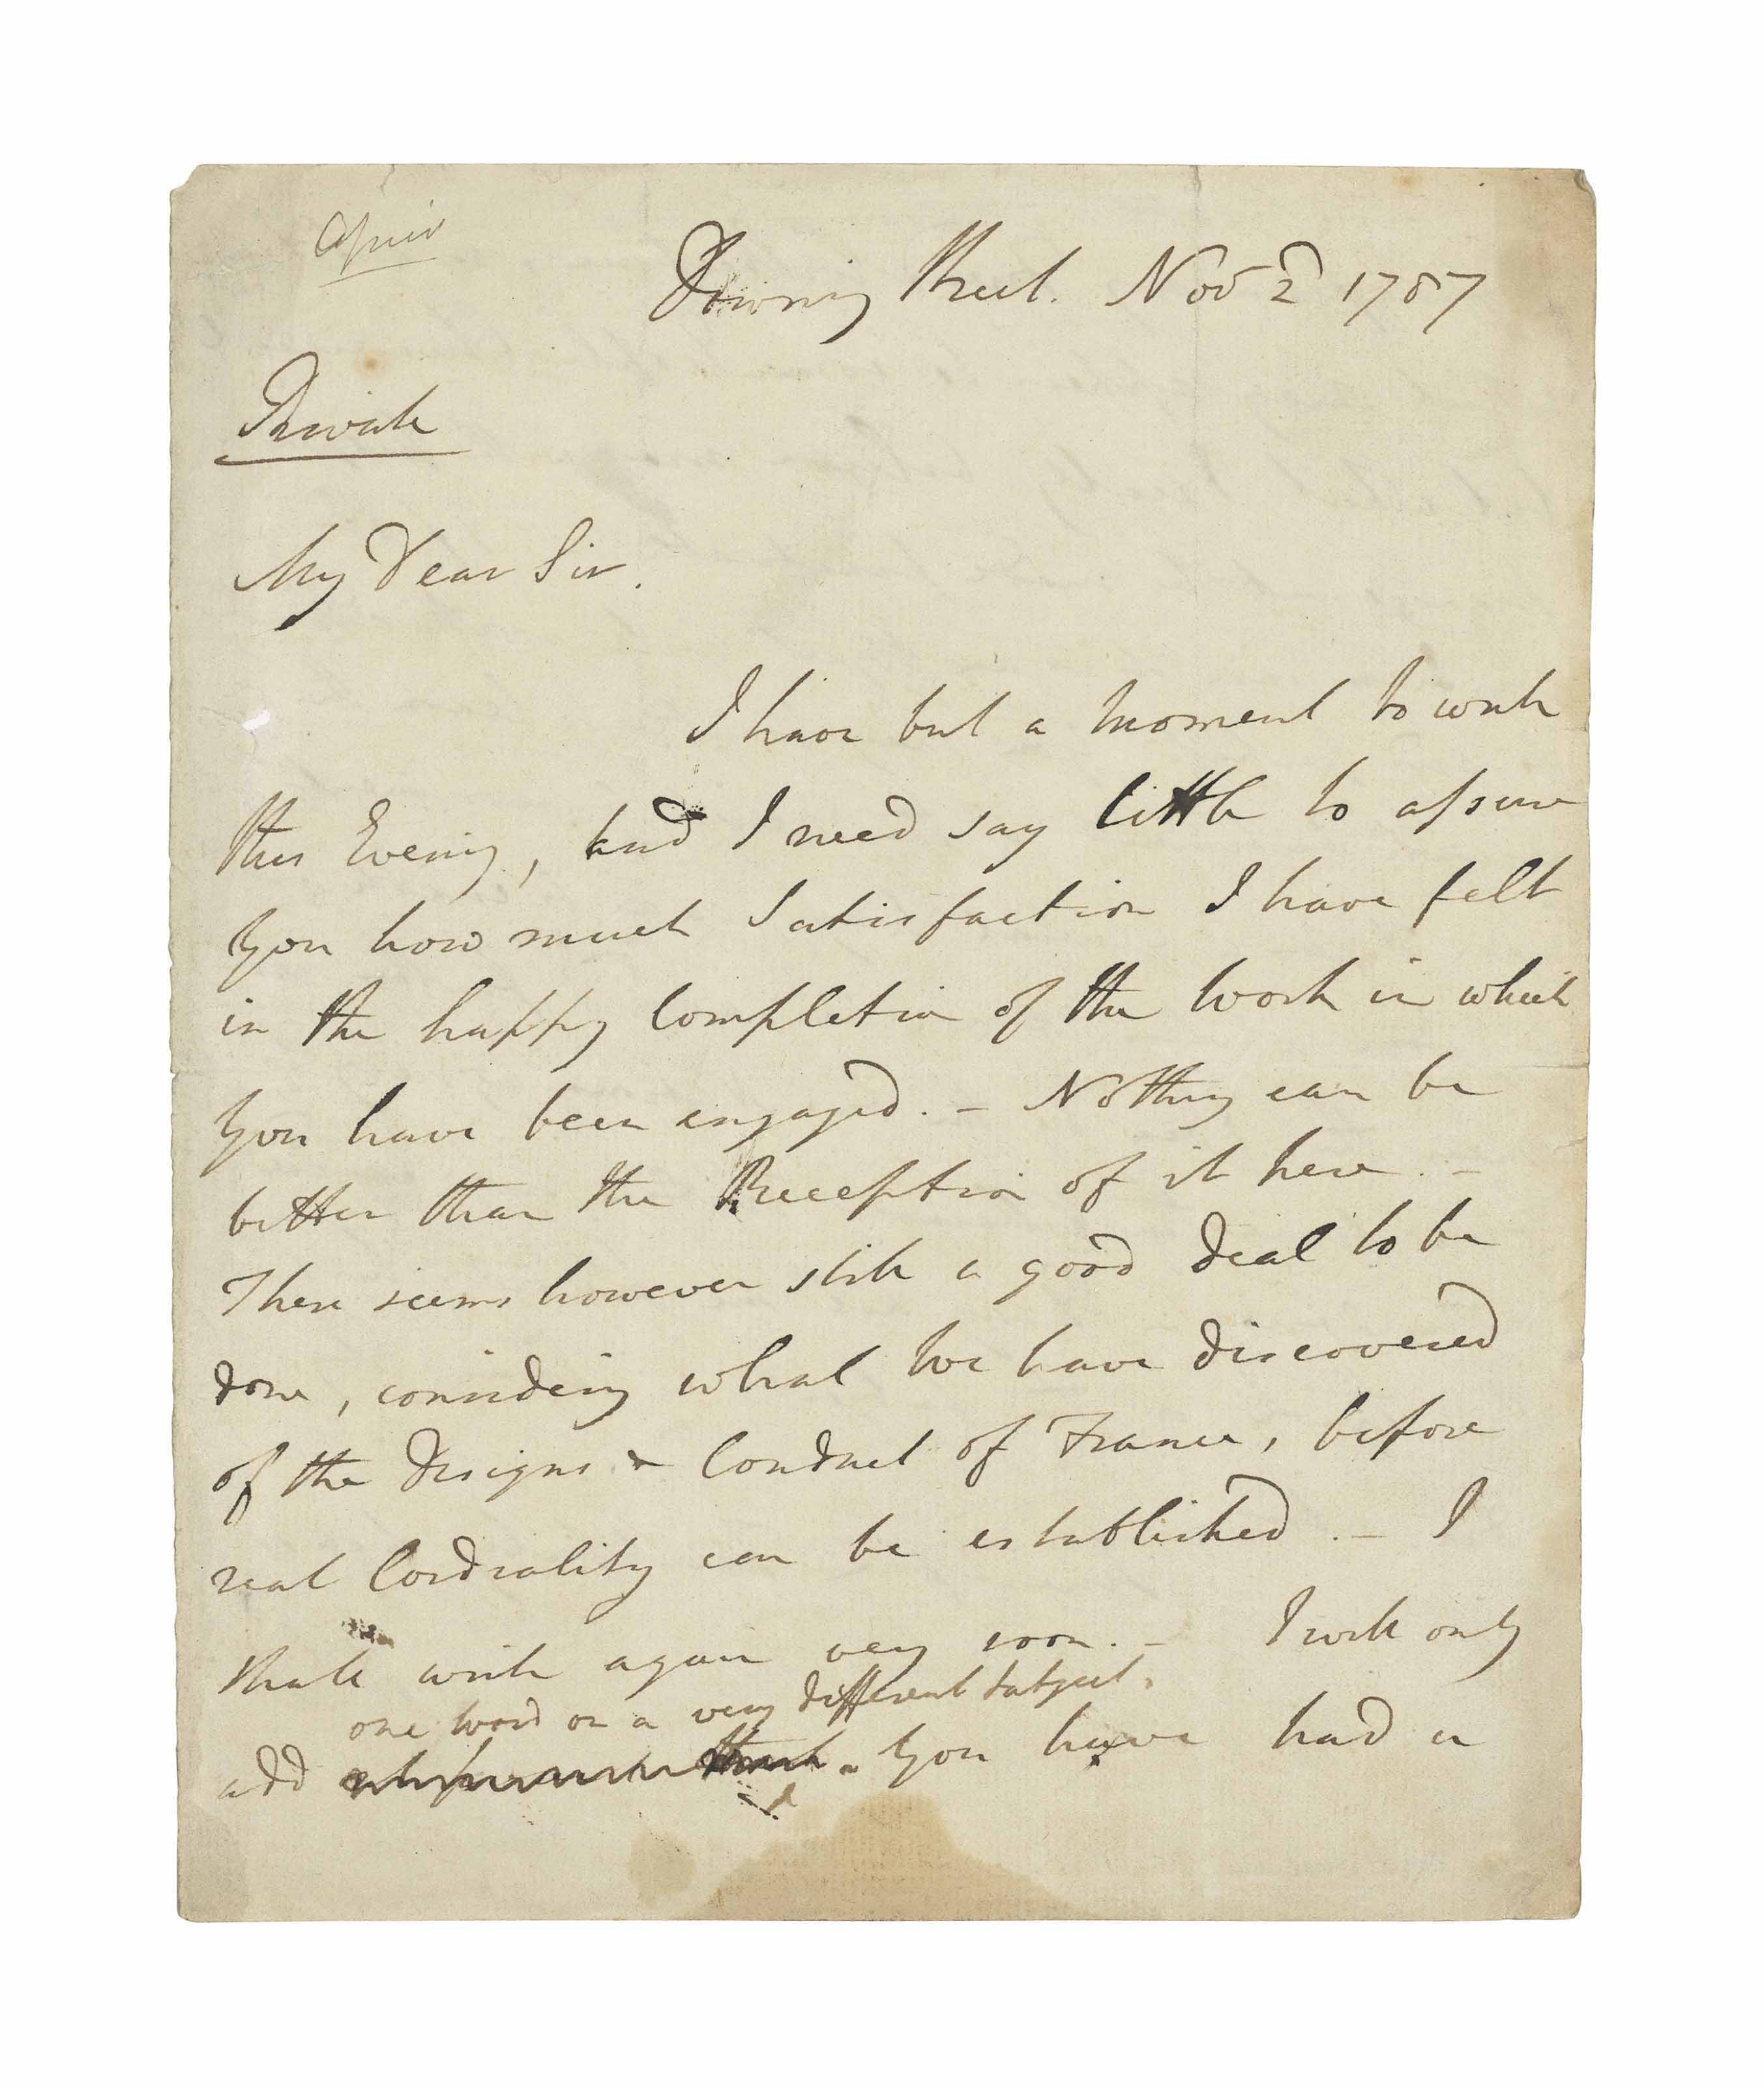 Copied
Downing Street. Nov 2d 1787
Private
My Dear Sir.
I have but a moment to write
this Evening, and I need say little to assure
you how much Satisfaction I have felt
in the happy Completion of the Work in which
you have been engaged. – Nothing can be
better than the Reception of it here. –
There seems however still a good deal to be
done, considering what We have discovered
of the Designs & Conduct of France, before
real Cordiality can be established. – I
shall write again very soon. – I will only
one word on a very different subject.
add – You have had a